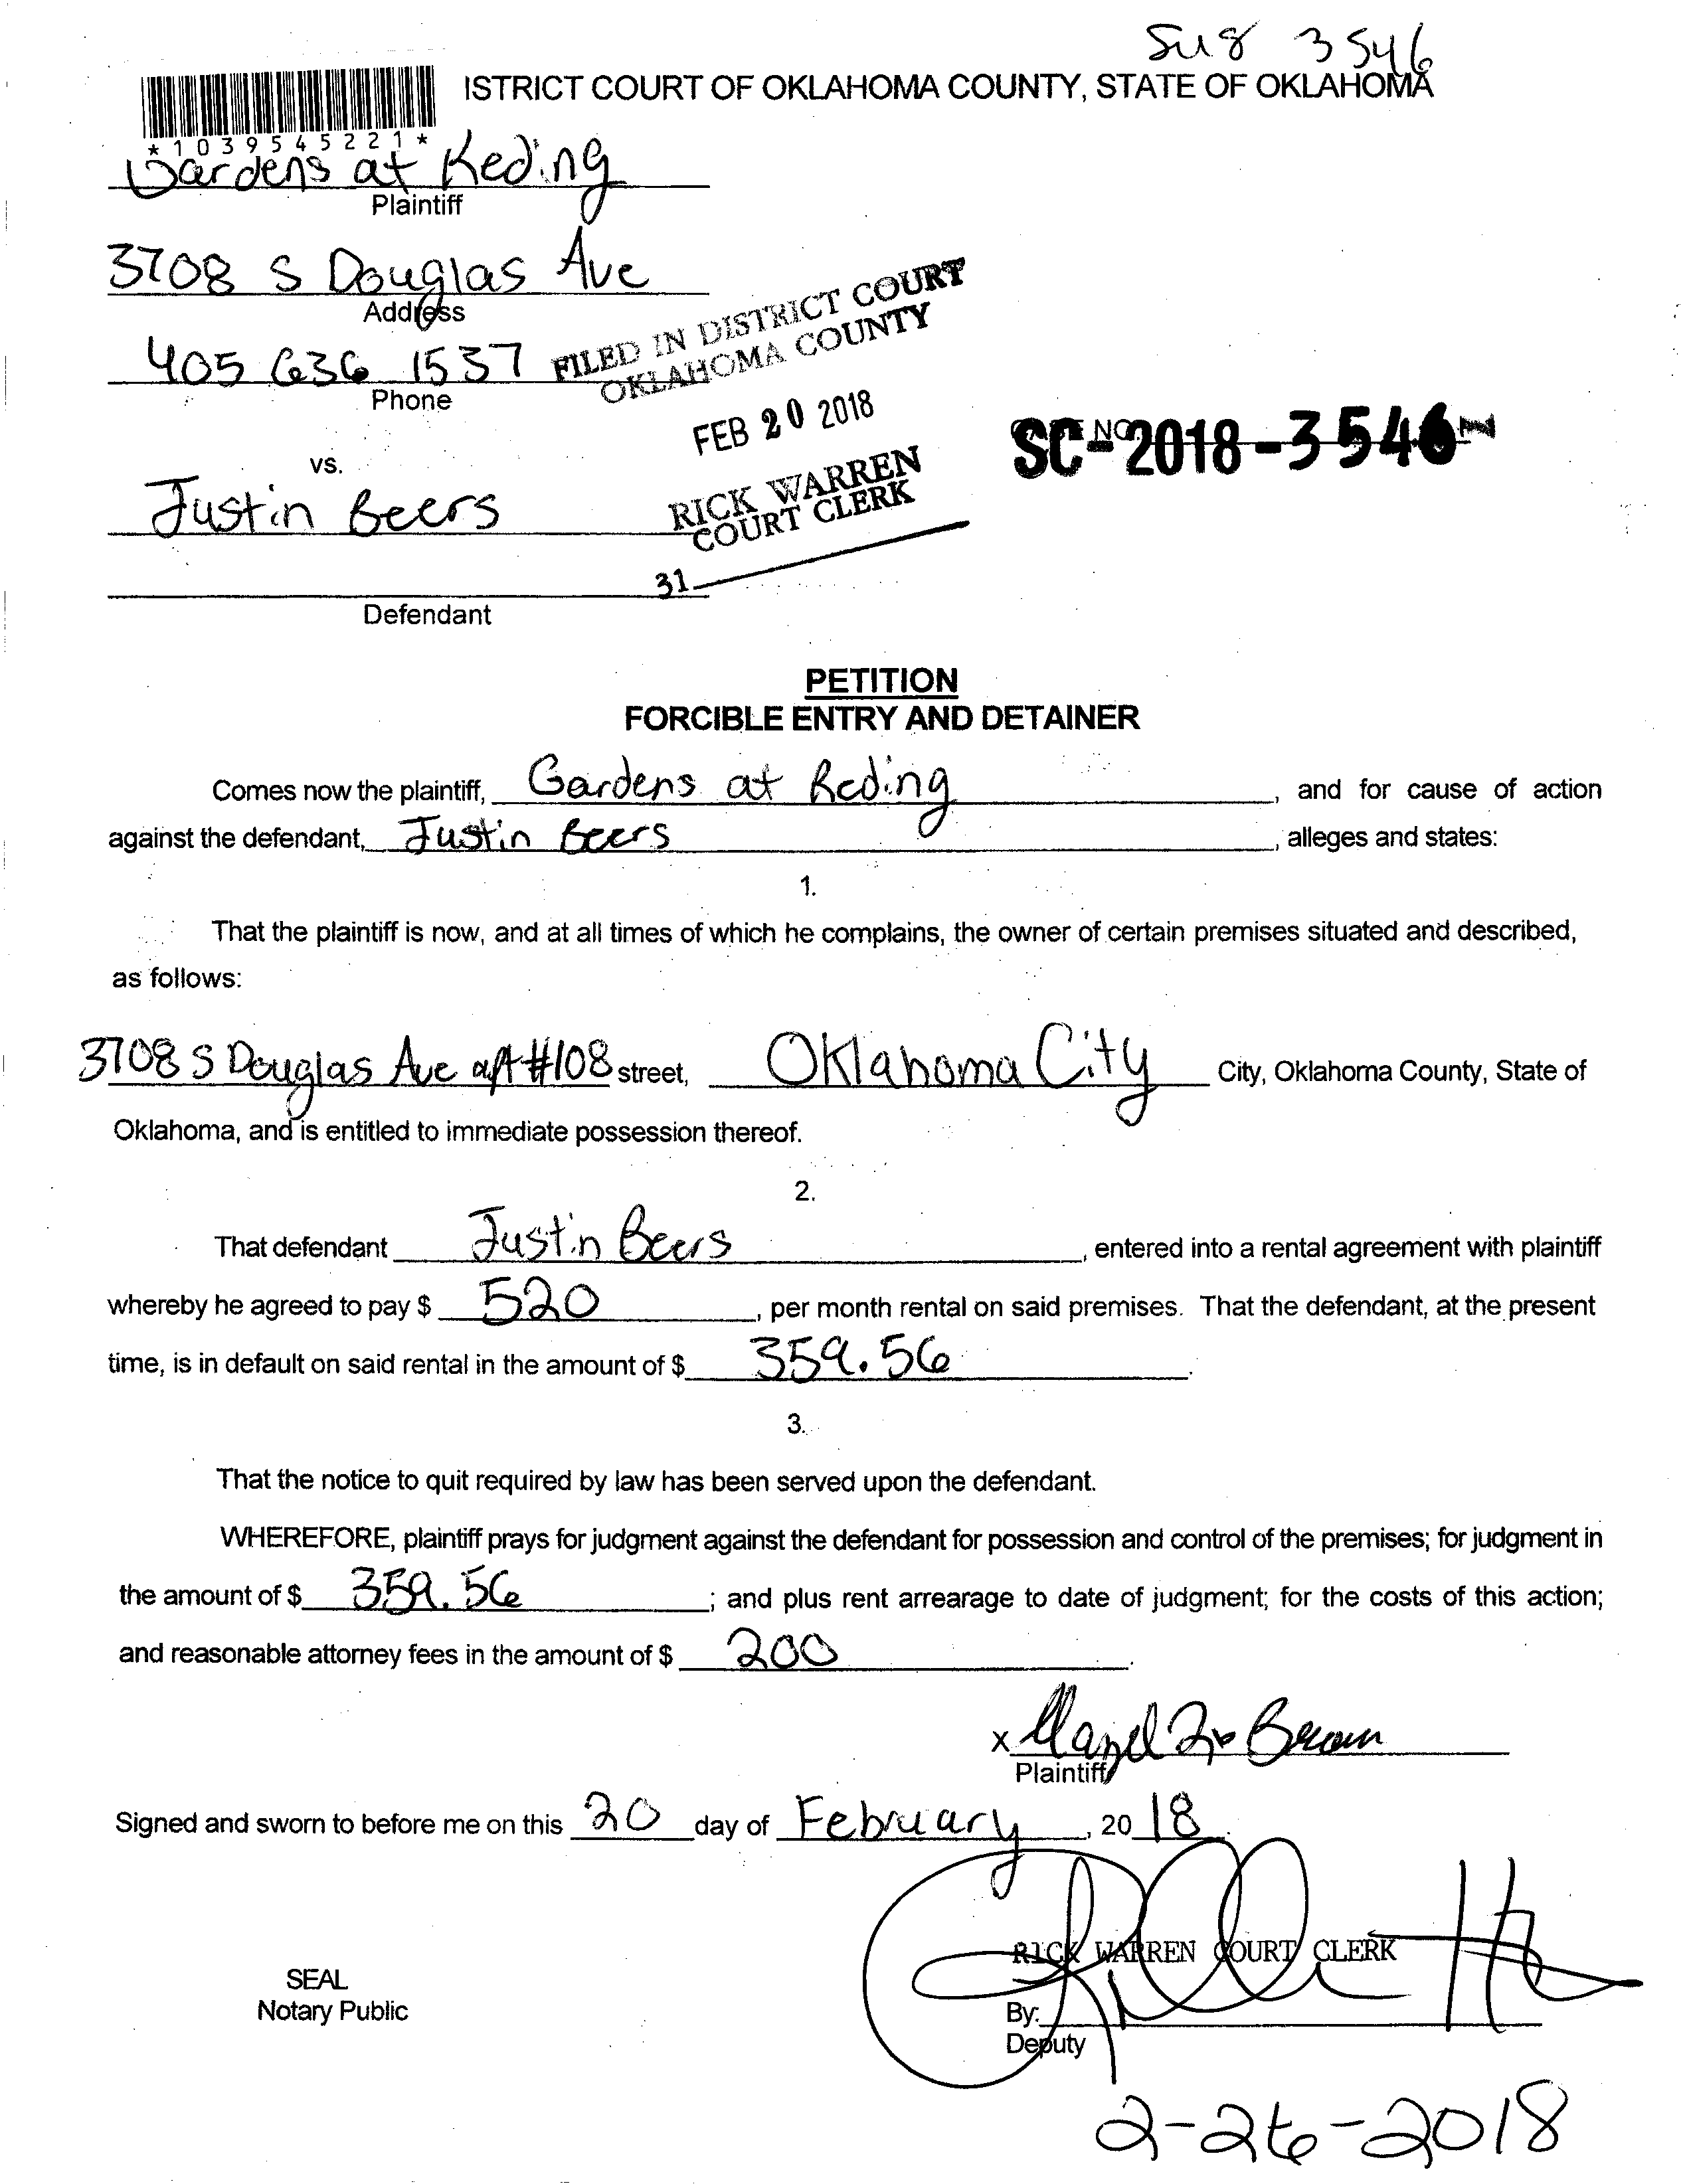 3546
ISTRICT COURT OF OKLAHOMA COUNTY, STATE OF OKLAHOMA
*1039545221*
Gardens at Reding
Plaintiff
3708 S Douglas Ave
Address
405 636 1537
Phone
FILED IN DISTRICT COURT
OKLAHOMA COUNTY
FEB 20 2018
RICK WARREN
COURT CLERK
31
SC-2018-3546
vs.
Justin Beers
Defendant
PETITION
FORCIBLE ENTRY AND DETAINER
Comes now the plaintiff, Gardens at Reding, and for cause of action
against the defendant, Justin Beers, alleges and states:
1.
That the plaintiff is now, and at all times of which he complains, the owner of certain premises situated and described,
as follows:
3708 S Douglas Ave apt #108 street, Oklahoma City City, Oklahoma County, State of
Oklahoma, and is entitled to immediate possession thereof.
2.
That defendant Justin Beers, entered into a rental agreement with plaintiff
whereby he agreed to pay $ 520, per month rental on said premises. That the defendant, at the present
time, is in default on said rental in the amount of $ 359.56.
3.
That the notice to quit required by law has been served upon the defendant.
WHEREFORE, plaintiff prays for judgment against the defendant for possession and control of the premises; for judgment in
the amount of $ 359.56; and plus rent arrearage to date of judgment; for the costs of this action;
and reasonable attorney fees in the amount of $ 200.
x Brown
Plaintiff
Signed and sworn to before me on this 20 day of February, 2018.
RICK WARREN COURT CLERK
SEAL
Notary Public
By:
Deputy
2-26-2018